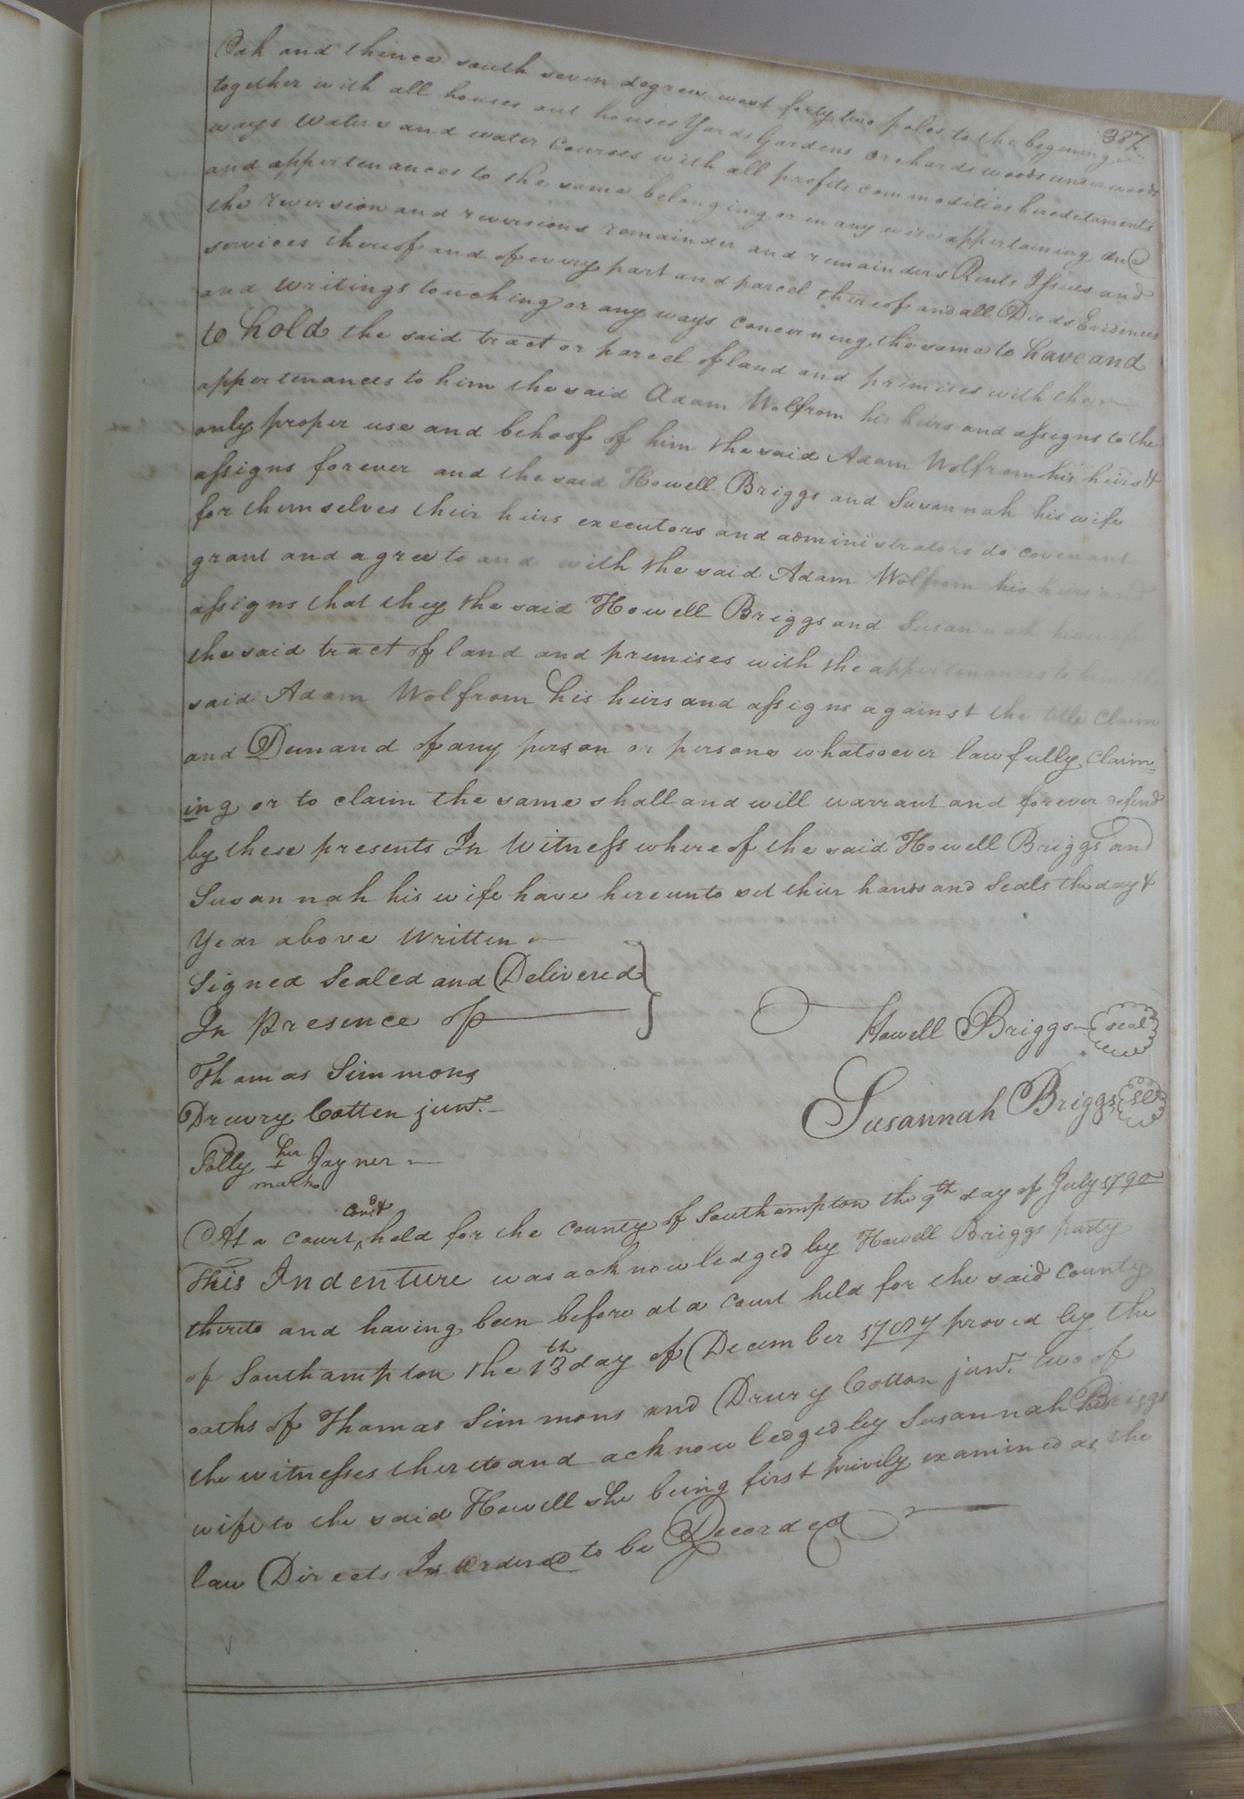 387
Oak and thence south seven degrees west forty two poles to the begening
together with all houses out houses Yards Gardens Orchards woods underwoods
ways Waters and water courses with all profits commodities heredetaments
and appertenances to the same belonging or in any wise appertaining and
the reversion and reversions remainder and remainders Rents Issues and
services thereof and of every part and parcel thereof and all Deeds Evidences
and writings touching or any ways concerning the same to have and
to hold the said tract or parcel of land and premises with the
appertenances to him the said Adam Wolfrom his heirs and assigns to the
only proper use and behoof of him the said Adam Wolfrom his heirs &
assigns forever and the said Howell Briggs and Susannah his wife
for themselves their heirs executors and administrators do covenant
grant and agree to and with the said Adam Wolfrom his heirs and
assigns that they the said Howell Briggs and Susannah
the said tract of land and premises with the appertenances to him the
said Adam Wolfrom his heirs and assigns against the title claim
and Demand of any person or persons whatsoever lawfully claim=
ing or to claim the same shall and will warrant and forever defend
by these presents In Witness whereof the said Howell Briggs and
Susannah his wife have hereunto set their hands and Seals the day &
Year above Written
Signed Sealed and Delivered
In Presence of
Howell Briggs seal
Thomas Simmons
Susannah Briggs
Drewry Cotten junr.
Polly her + mark Jayner
At a court cond held for the county of Southampton the 9th day of July 1790
This Indenture was acknowledged by Howell Briggs party
thereto and having been before at a court held for the said county
of Southampton the 13th day of December 1787 proved by the
oaths of Thomas Simmons and Drury Cotton junr. two of
the witnesses thereto and acknowledged by Susannah Briggs
wife to the said Howell she being first privily examined as the
law Directs Is ordered to be Recorded